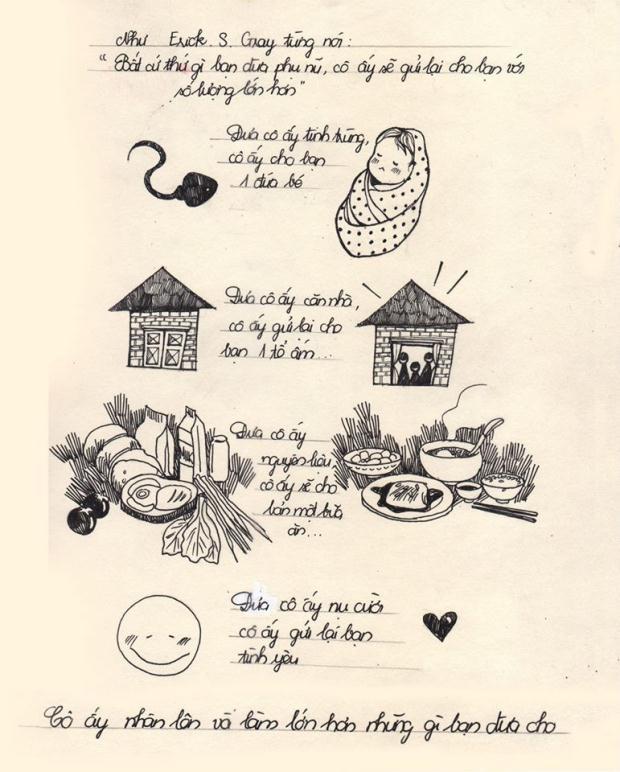 Như Erick. S. Gray từng nói:
"Bất cứ thứ gì bạn đưa phụ nữ, cô ấy sẽ gửi lại cho bạn với
số lượng lớn hơn"
Đưa cô ấy tinh trùng,
cô ấy cho bạn
1 đứa bé
Đưa cô ấy căn nhà,
cô ấy gửi lại cho
bạn 1 tổ ấm...
Đưa cô ấy
nguyên liệu,
cô ấy sẽ cho
bạn một bữa
ăn...
Đưa cô ấy nụ cười
cô ấy gửi lại bạn
tình yêu
Cô ấy nhân lên và làm lớn hơn những gì bạn đưa cho